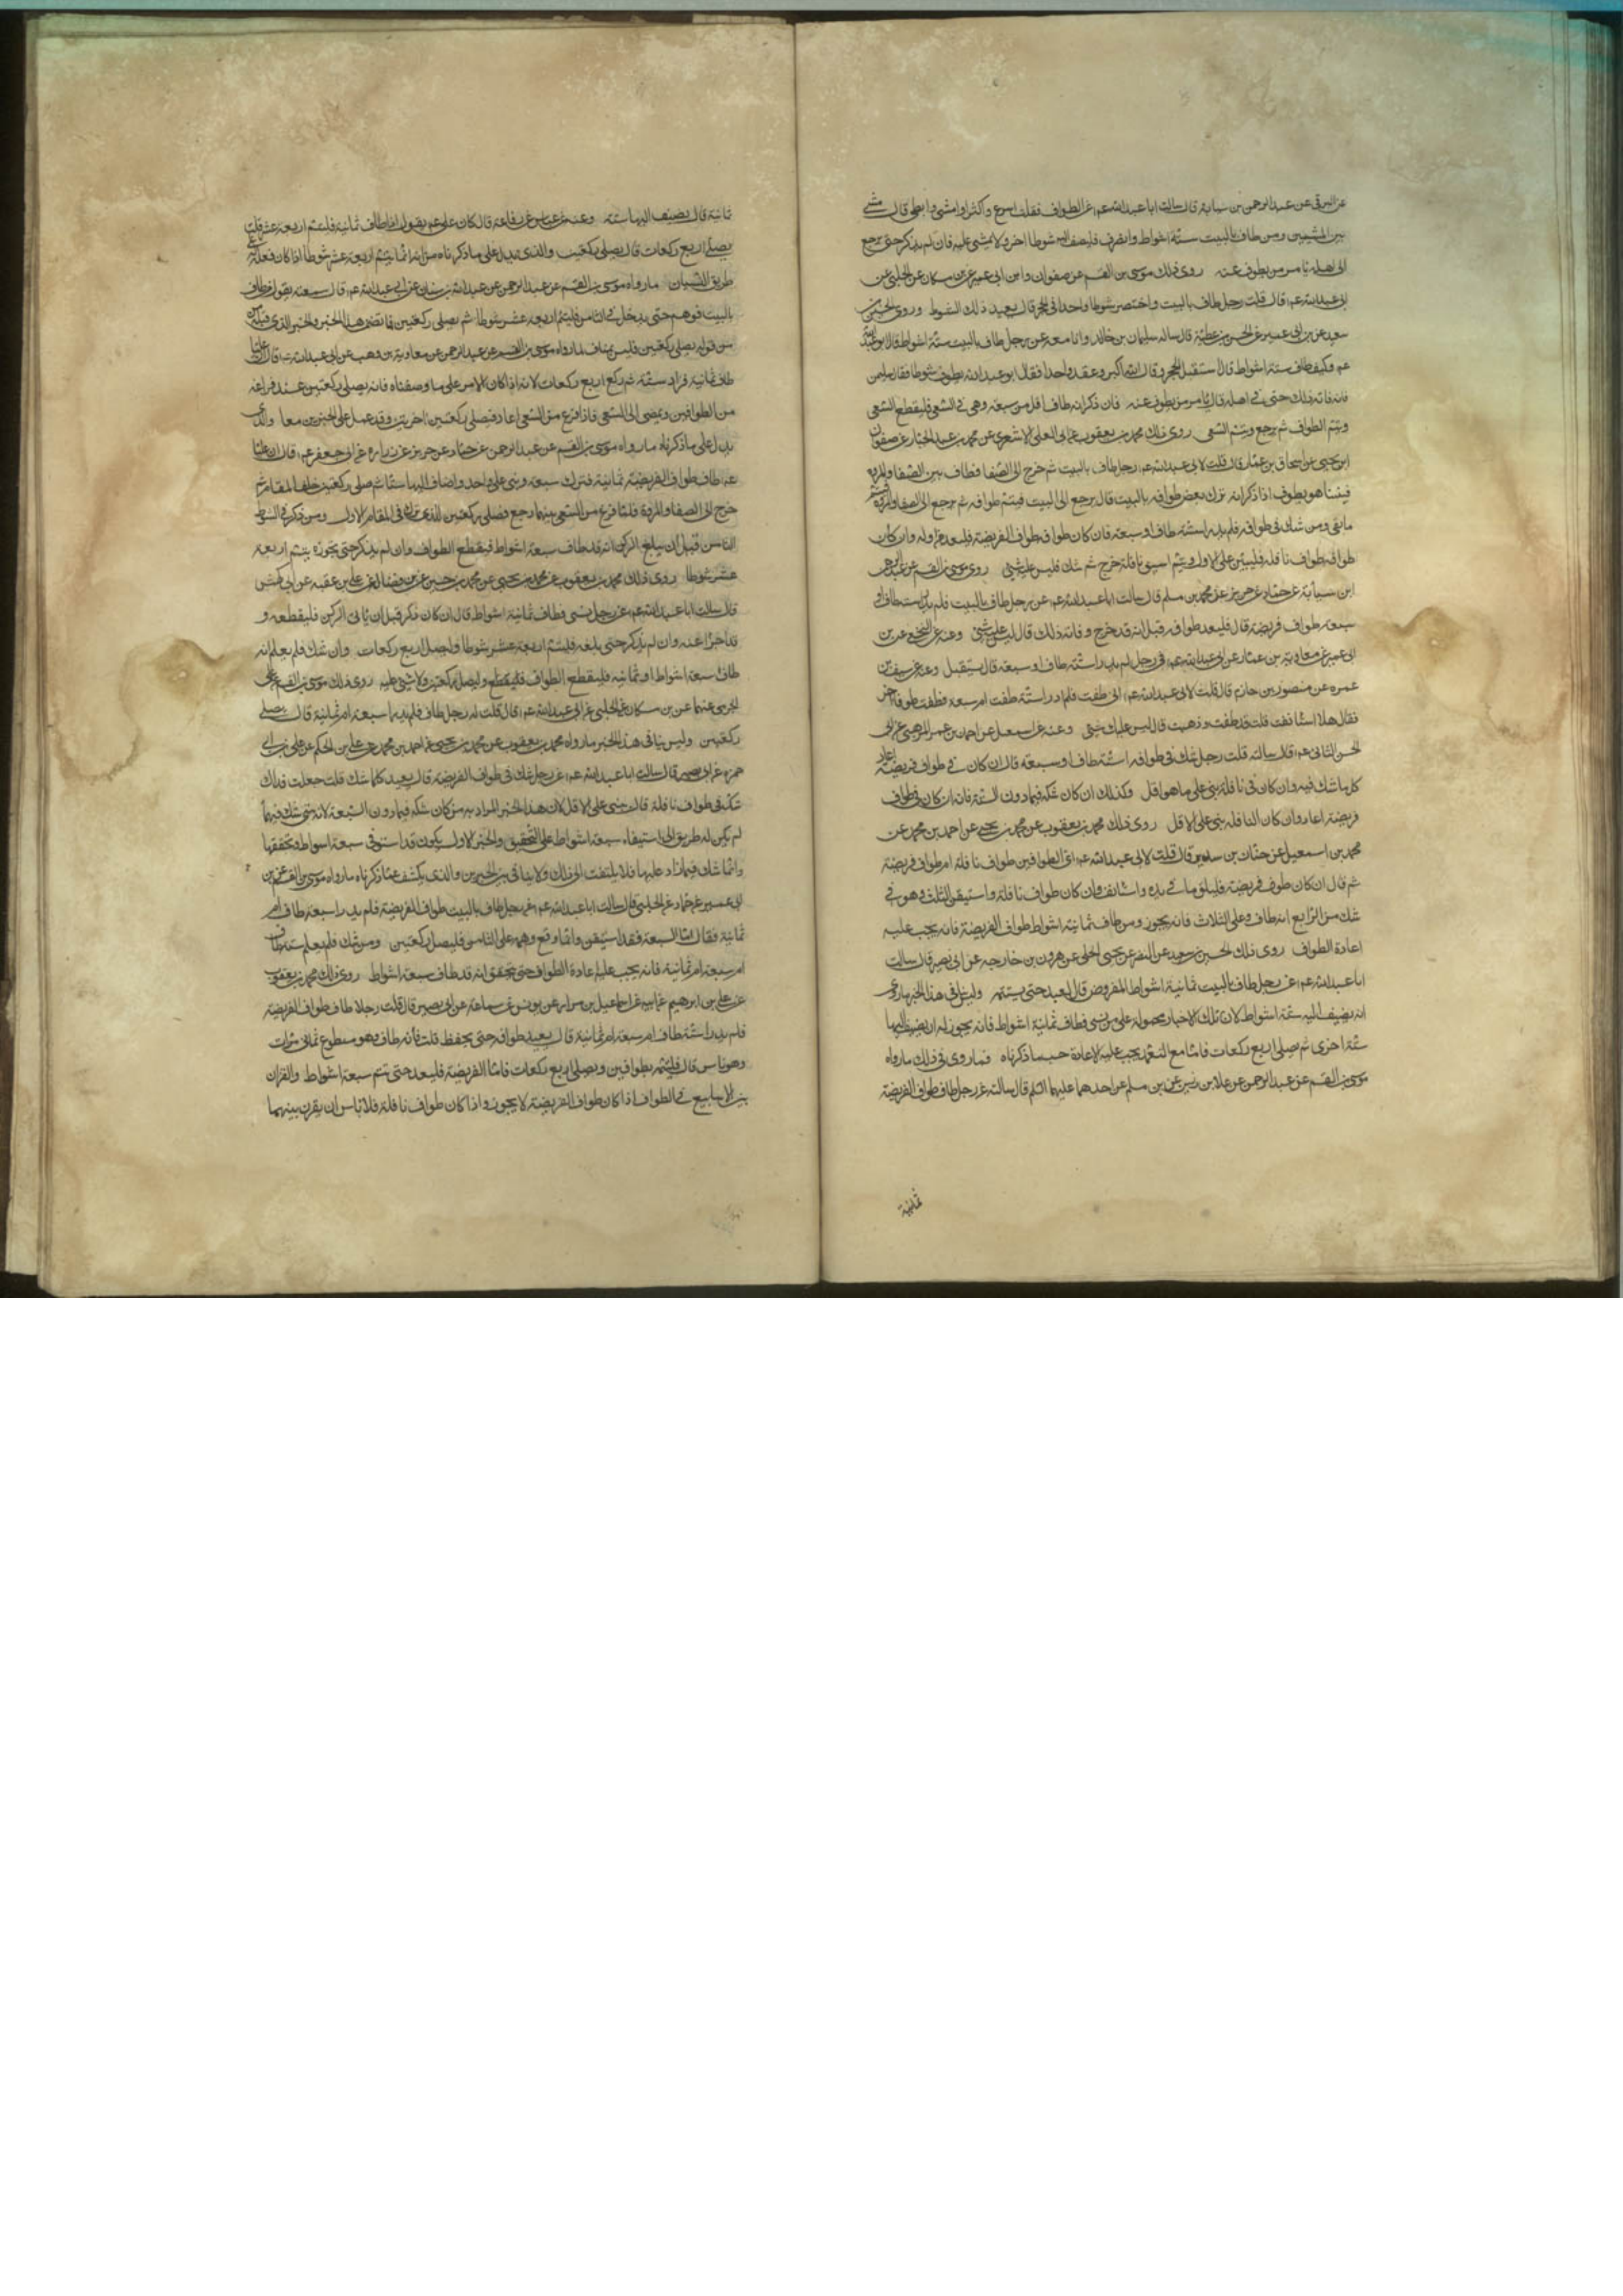 عن البرقى عن عبدالرحمن بن سيابة قال سالت اباعبدالله عم عن الطواف فقلت اسرع واكثر او امشى وابطى قال مشى
بين المشيين ومن طاف بالبيت ستة اشواط وانصرف فليضف اليه شوطا اخر ولا شىء عليه فان لم يذكر حتى يرجع
الى اهله فامر من يطوف عنه روى ذلك موسى بن القسم عن صفوان وابن ابى عمير عن بن مسكان عن الحلبى عن
ابى عبدالله عم قال قلت رجل طاف بالبيت واختصر شوطا واحدا فى الحجر قال يعيد ذلك الشوط وروى الحسين بن
سعيد عن بن ابى عمير عن الحسن بن عطية قال ساله سليمان بن خالد وانا معه عن رجل طاف بالبيت ستة اشواط قال ابو عبدالله
عم وكيف طاف ستة اشواط قال استقبل الحجر وقال الله اكبر وعقد واحدا فقال ابو عبدالله يطوف شوطا فقال سليمن
فانه فاته ذلك حتى فى اهله قال يامر من يطوف عنه فان ذكر انه طاف اقل من سبعة وهى فى السعى فليقطع السعى
ويتم الطواف ثم يرجع ويتم السعى روى ذلك محمد بن يعقوب عن ابى العلى الاشعرى عن محمد بن عبدالجبار عن صفوان
ابن يحيى عن اسحاق بن عمار قال قلت لابى عبدالله عم رجل طاف بالبيت ثم خرج الى الصفا فطاف بين الصفا والمروة
فبينا هو يطوف اذا ذكر انه ترك بعض طوافه بالبيت قال يرجع الى البيت فيتم طوافه ثم يرجع الى الصفا والمروة فيتم
ما بقى ومن شك فى طوافه فلم يدر استة طاف او سبعة فان كان طوافه طواف الفريضة فليعد من اوله وان كان
طوافه طواف نافلة فليبن على الاول ويتم اسبوعا نافلة خرج ثم شك فليس عليه شىء روى موسى بن القسم عن عبدالرحمن
ابن سيابة عن حماد عن حريز عن محمد بن مسلم قال سالت اباعبدالله عم عن رجل طاف بالبيت فلم يدر است طاف او
سبعة طواف فريضة قال فليعد طوافه قيل انه قد خرج وفاته ذلك قال ليس عليه شىء وعنه عن النخعى عن بن
ابى عمير عن معاوية بن عمار عن ابى عبدالله عم فى رجل لم يدر استة طاف او سبعة قال يستقبل وعنه عن سيف بن
عميره عن منصور بن حازم قال قلت لابى عبدالله عم انى طفت فلم ادر استة طفت ام سبعة فطفت طوفا اخر
فقال هلا استانفت قلت قد طفت وذهبت قال ليس عليك شىء وعنه عن اسمعيل عن احمد بن عمر المرهبى عن ابى
الحسن الثانى عم قال سالته قلت رجل شك فى طوافه استة طاف او سبعة قال ان كان فى طواف فريضة اعاد
كل ما شك فيه وان كان فى نافلة بنى على ما هو اقل وكذلك ان كان شكه فيما دون الستة فانه ان كان فى طواف
فريضة اعاد وان كان النافلة بنى على الاقل روى ذلك محمد بن يعقوب عن محمد بن يحيى عن احمد بن محمد عن
محمد بن اسمعيل عن حنان بن سدير قال قلت لابى عبدالله عم اى الطوافين طواف نافلة ام طواف فريضة
ثم قال ان كان طوف فريضة فليلق ما فى يده واستانف وان كان طواف نافلة واستيقن الثلث وهو فى
شك من الرابع انه طاف وعلى الثلاث فانه يجوز ومن طاف ثمانية اشواط طواف الفريضة فانه يجب عليه
اعادة الطواف روى ذلك الحسين بن سعيد عن النضر عن يحيى الحلبى عن هرون بن خارجه عن ابى بصير قال سالت
اباعبدالله عم عن رجل طاف بالبيت ثمانية اشواط المفروض قال يعيد حتى يستتمه وليس ينافى هذا الخبر ما روى
انه يضيف اليه ستة اشواط لان تلك الاخبار محمولة على من نسى فطاف ثمانية اشواط فانه يجوز له ان يضيف اليها
ستة اخرى ثم يصلى اربع ركعات فاما مع التعمد يجب عليه الاعادة حسب ما ذكرناه فما روى فى ذلك ما رواه
موسى بن القسم عن عبدالرحمن عن علا بن رزين عن بن مسلم عن احدهما عليهما السلم قال سالته عن رجل طاف طواف الفريضة
ثمانية
ثمانية قال يضيف اليها ستة وعنه عن عباس عن رفاعة قال كان على عم يقول اذا طاف ثمانية فليتم اربعة عشر قلت
يصلى اربع ركعات قال يصلى ركعتين والذى يدل على ما ذكرناه من انه انما يتم اربعة عشر شوطا اذا كان فعله على
طريق النسيان ما رواه موسى بن القسم عن عبدالرحمن عن عبدالله بن سنان عن ابى عبدالله عم قال سمعته يقول من طاف
بالبيت فوهم حتى يدخل فى الثامن فليتم اربعة عشر شوطا ثم يصلى ركعتين فما تضمن هذا الخبر والخبر الذى قبله
من قوله يصلى ركعتين فليس بمناف لما رواه موسى بن القسم عن عبدالرحمن عن معاوية بن وهب عن ابى عبدالله قال ان عليا
طاف ثمانية فزاد ستة ثم ركع اربع ركعات لانه اذا كان الامر على ما وصفناه فانه يصلى ركعتين عند فراغه
من الطوافين ويمضى الى السعى فاذا فرغ من السعى اعاد فيصلى ركعتين اخريتن وقد عمل على الخبرين معا والذى
يدل على ما ذكرناه ما رواه موسى بن القسم عن عبدالرحمن عن حماد عن حريز عن زراره عن ابى جعفر عم قال ان عليا
عم طاف طواف الفريضة ثمانية فترك سبعة وبنى على واحد واضاف اليها ستا ثم صلى ركعتين خلف المقام ثم
خرج الى الصفا والمروة فلما فرغ من السعى بينهما رجع فصلى ركعتين الذى ترك فى المقام الاول ومن ذكر فى الشوط
الثامن قبل ان يبلغ الركن انه قد طاف سبعة اشواط فيقطع الطواف وان لم يذكر حتى يجوزه يتم اربعة
عشر شوطا روى ذلك محمد بن يعقوب عن محمد بن يحيى عن محمد بن حسين عن بن فضال عن على بن عقبه عن ابى كهمس
قال سالت اباعبدالله عم عن رجل نسى فطاف ثمانية اشواط قال ان كان ذكر قبل ان ياتى الركن فليقطعه و
قد اجزا عنه وان لم يذكر حتى بلغه فليتم اربعة عشر شوطا وليصل اربع ركعات وان شك فلم يعلم انه
طاف سبعة اشواط او ثمانيه فليقطع الطواف وليصل ركعتين ولا شىء عليه روى ذلك موسى بن القسم عن على
الجرمى عنهما عن بن مسكان عن الحلبى عن ابى عبدالله عم قال قلت له رجل طاف فلم يدر اسبعة ام ثمانية قال يصلى
ركعتين وليس ينافى هذا الخبر ما رواه محمد بن يعقوب عن محمد بن يحيى عن احمد بن محمد عن على بن الحكم عن على بن ابى
حمزه عن ابى بصير قال سالت اباعبدالله عم عن رجل شك فى طواف الفريضة قال يعيد كلما شك قلت جعلت فداك
شك فى طواف نافلة قال يبنى على الاقل لان هذا الخبر المراد به من كان شكه فيما دون السبعة لانه متى شك فيها
لم يكن له طريق الى استيفاء سبعة اشواط على التحقيق والخبر الاول يكون قد استوفى سبعة اشواط وتحققها
وانما شك فيما زاد عليها فلا يلتفت الى ذلك ولا ينافى بين الخبرين والذى يكشف عما ذكرناه ما رواه موسى بن القسم عن بن
ابى عمير عن حماد عن الحلبى قال سالت اباعبدالله عم عن رجل طاف بالبيت طواف الفريضة فلم يدر اسبعة طاف ام
ثمانية فقال اما السبعة فقد استيقن وانما وقع وهمه على الثامن فليصل ركعتين ومن شك فلم يعلم ستة طاف
ام سبعة ام ثمانية فانه يجب عليه اعادة الطواف حتى يتحقق انه قد طاف سبعة اشواط روى ذلك محمد بن يعقوب
عن على بن ابرهيم عن ابيه عن اسماعيل بن مرار عن يونس عن سماعة عن ابى بصير قال قلت رجل طاف طواف الفريضة
فلم يدر استة طاف ام سبعة ام ثمانية قال يعيد طوافه حتى يحفظ قلت فانه طاف وهو متطوع ثمانى مرات
وهو ناس قال فليتمه بطوافين ويصلى اربع ركعات فاما الفريضة فليعد حتى تتم سبعة اشواط والقران
بين الاسابيع فى الطواف اذا كان طواف الفريضة لا يجوز واذا كان طواف نافلة فلا باس ان يقرن بينهما